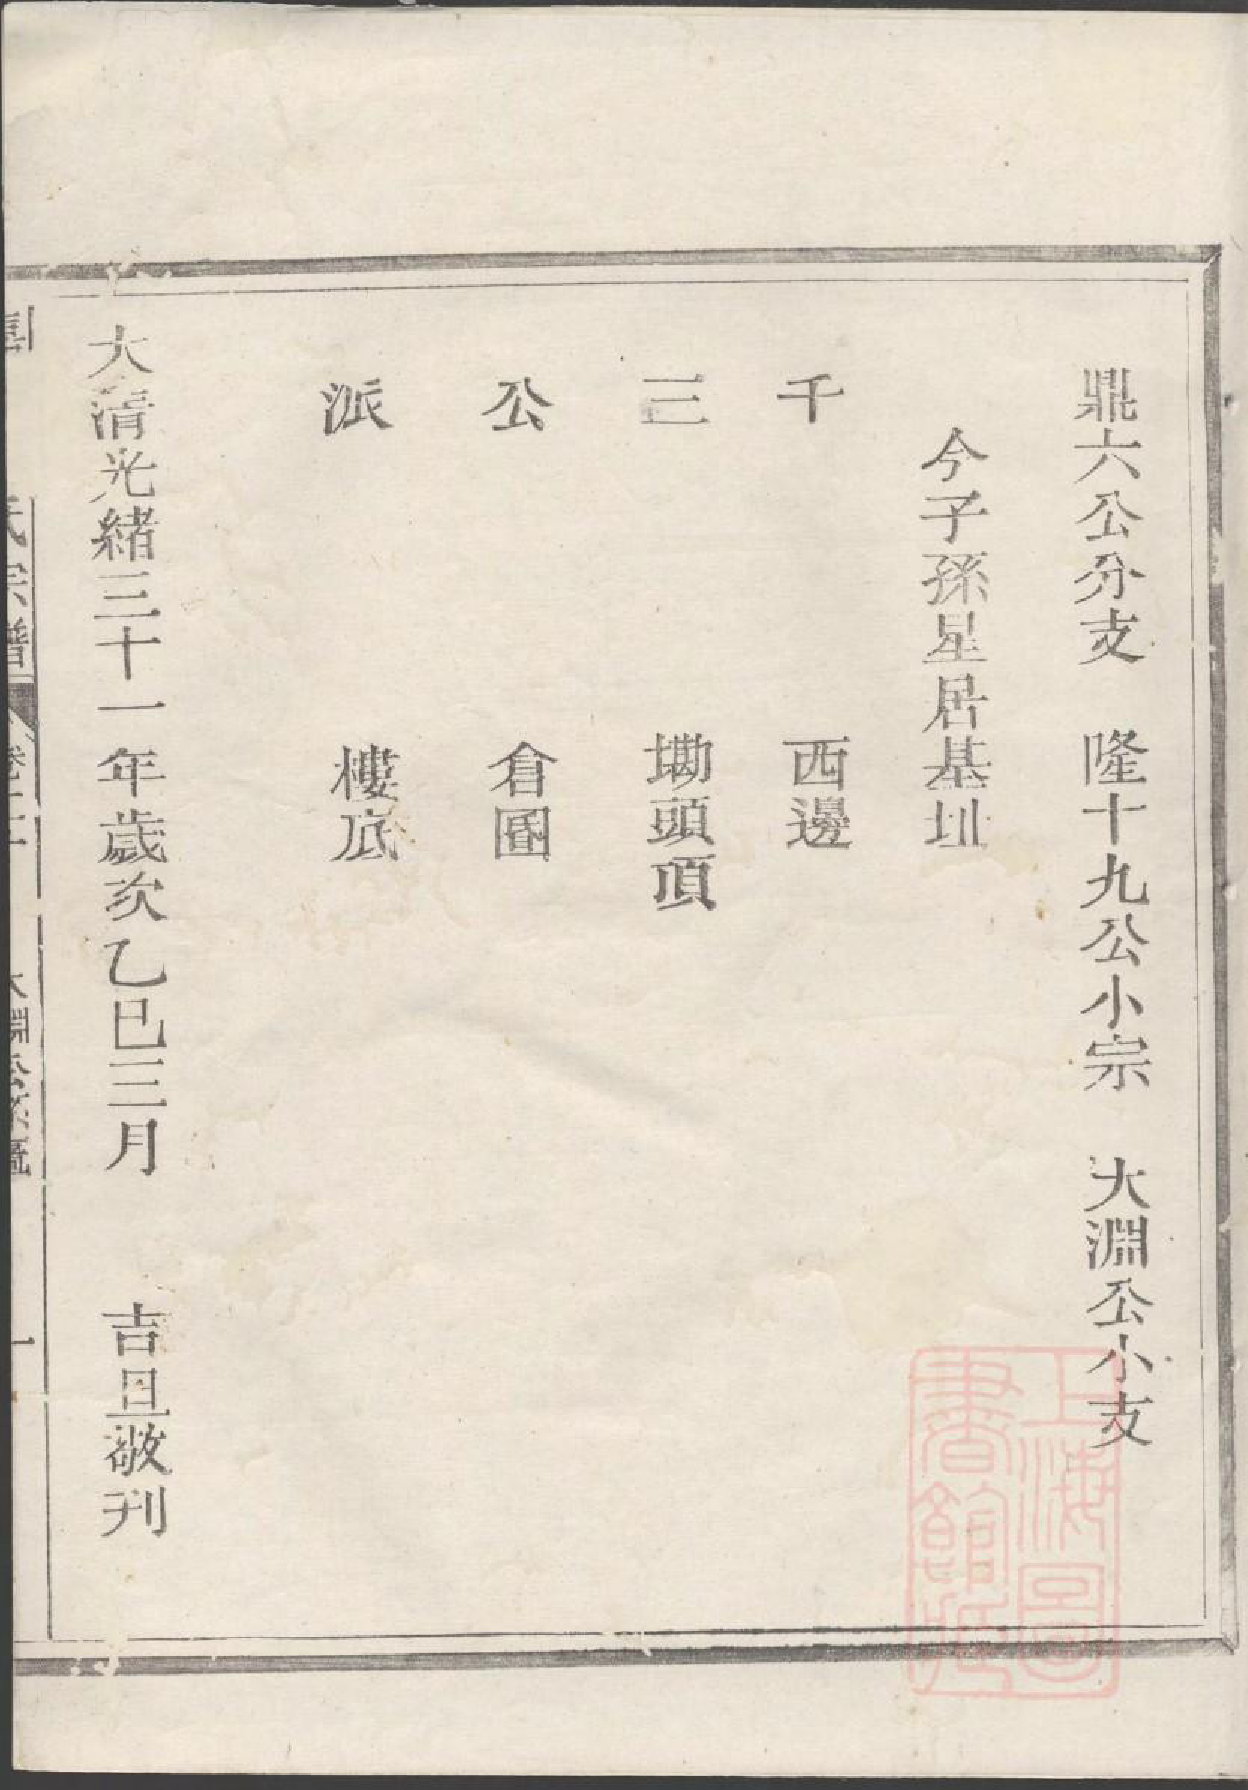 鼎六公分支　隆十九公小宗　大淵公小支
今子孫星居基址
千　西邊
三　墈頭項
公　倉圕
派　樓底
大清光緒三十一年歲次乙巳三月　吉旦敬刊
氏宗譜
上海圖書館藏